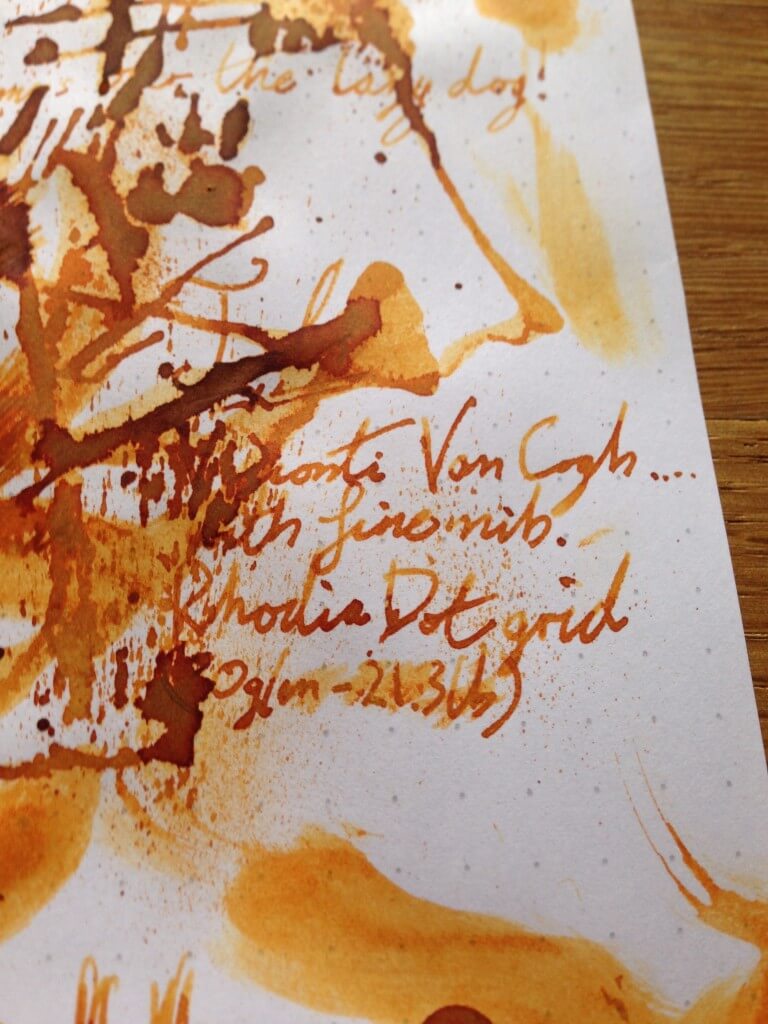 the lazy dog!
Visconti Van Gogh....
with fine nib.
Rhodia Dot grid
0g/m - 21.3lb)